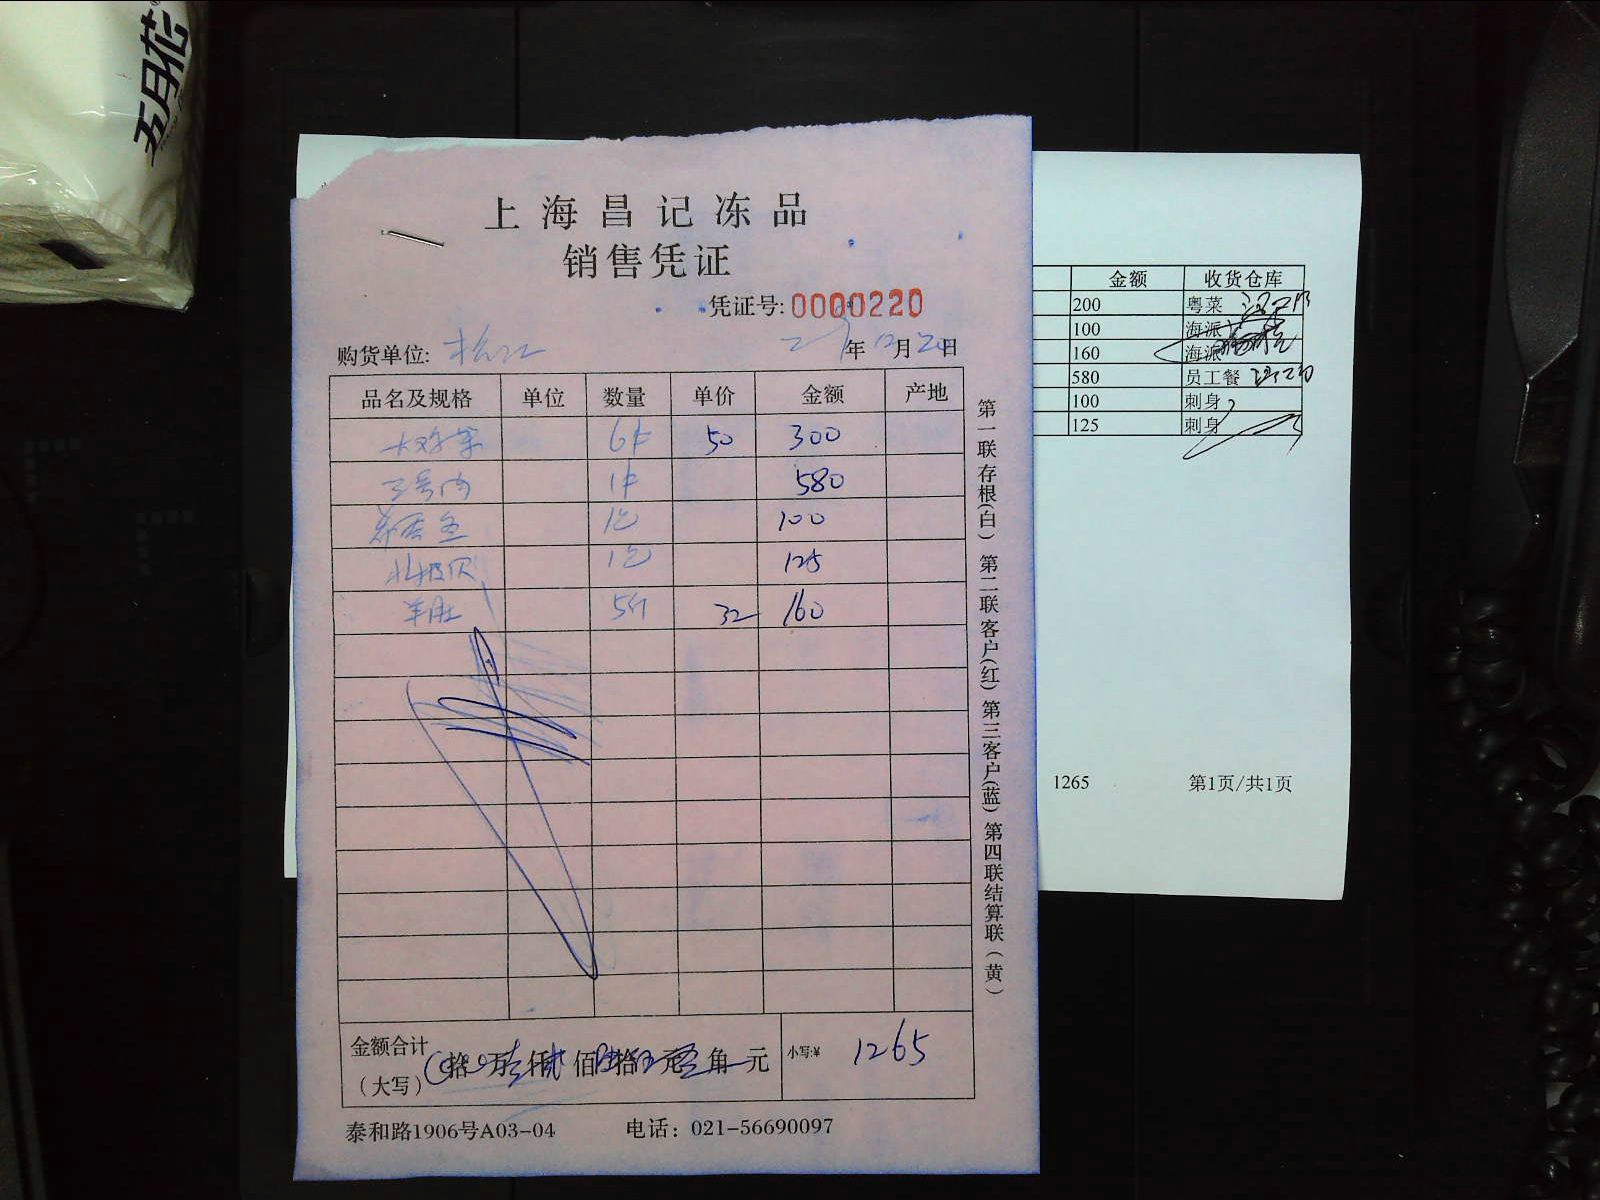 五月花
上海昌记冻品
销售凭证
凭证号: 0000220
购货单位: 松江 年12月20日
品名及规格 单位 数量 单价 金额 产地
6 50 300
1 580
1包 100
北极贝 1包 125
羊肚 5斤 32 160
金额合计
(大写) 拾 万 仟 佰 拾 元 角 元 小写:¥ 1265
泰和路1906号A03-04 电话: 021-56690097
第一联存根(白) 第二联客户(红) 第三客户(蓝) 第四联结算联(黄)
金额 收货仓库
200 粤菜
100 海派
160 海派
580 员工餐
100 刺身
125 刺身
1265 第1页/共1页